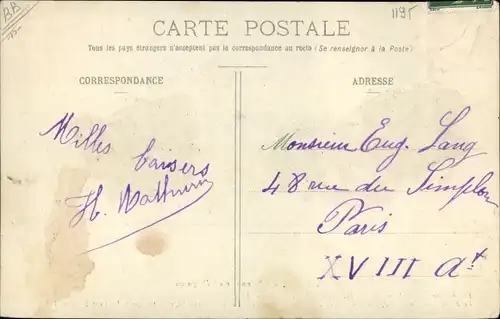 BB
1195
CARTE POSTALE
Tous les pays étrangers n'acceptent pas la correspondance au recto (Se renseigner à la Poste)
CORRESPONDANCE
Milles baisers
H. Mathurin
ADRESSE
Monsieur Eug. Lang
48 rue du Simplon
Paris
XVIII At